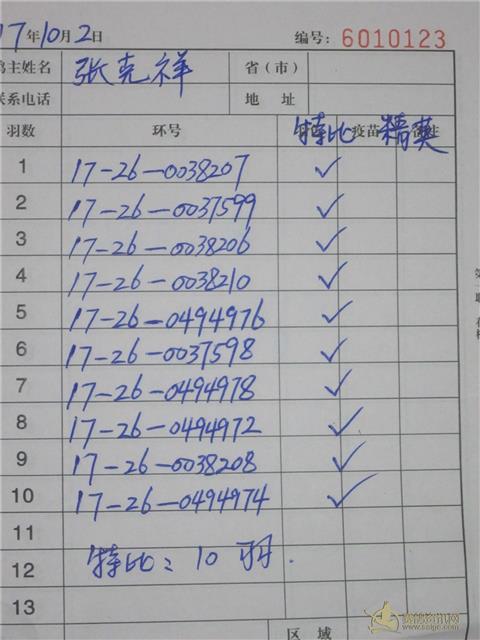 17年10月2日 编号: 6010123
鸽主姓名 张克祥 省(市)
联系电话 地 址
羽数 环号 特比 疫苗 精英
1 17-26-0038207 ✓
2 17-26-0037599 ✓
3 17-26-0038206 ✓
4 17-26-0038210 ✓
5 17-26-0494976 ✓
6 17-26-0037598 ✓
7 17-26-0494978 ✓
8 17-26-0494972 ✓
9 17-26-0038208 ✓
10 17-26-0494974 ✓
11
12 特比: 10羽.
13
区 域